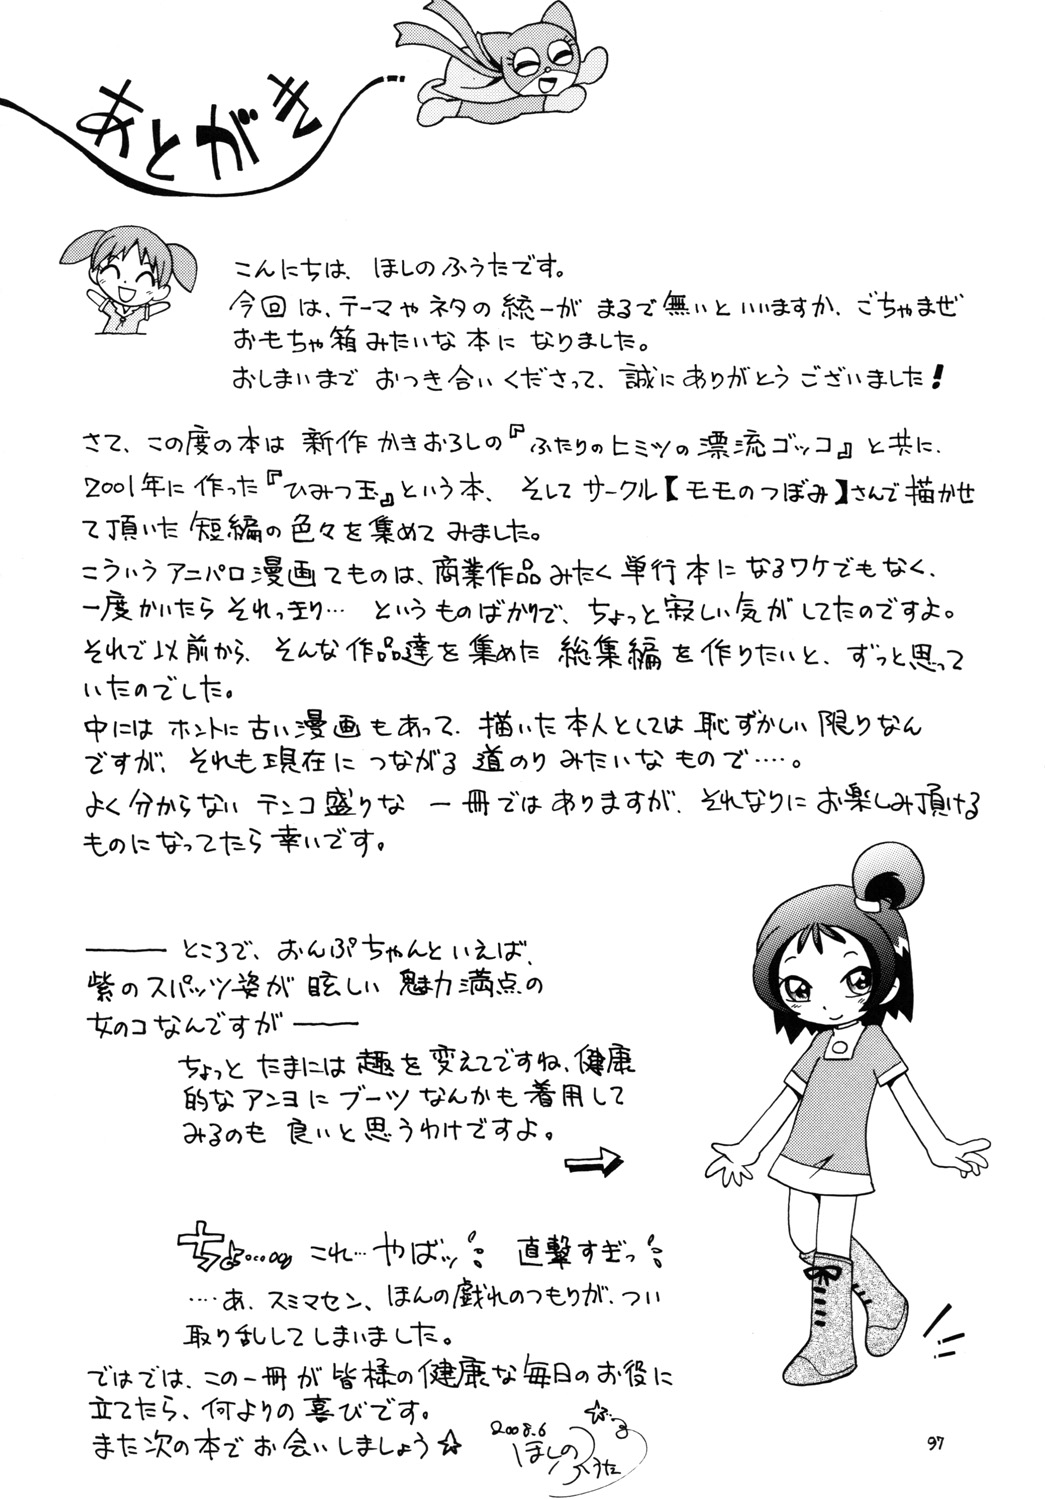 あとがき
こんにちは、ほしのふうたです。
今回は、テーマやネタの統一がまるで無いといいますか、ごちゃまぜ
おもちゃ箱みたいな本になりました。
おしまいまでおつき合いくださって、誠にありがとうございました!
さて、この度の本は新作かきおろしの『ふたりのヒミツの漂流ゴッコ』と共に、
2001年に作った『ひみつ玉』という本、そしてサークル【モモのつぼみ】さんで描かせ
て頂いた短編の色々を集めてみました。
こういうアニパロ漫画てものは、商業作品みたく単行本になるワケでもなく、
一度かいたらそれっきり…というものばかりで、ちょっと寂しい気がしてたのですよ。
それで以前から、そんな作品達を集めた総集編を作りたいと、ずっと思って
いたのでした。
中にはホントに古い漫画もあって、描いた本人としては恥ずかしい限りなん
ですが、それも現在につながる道のりみたいなもので……。
よく分からないテンコ盛りな一冊ではありますが、それなりにお楽しみ頂ける
ものになってたら幸いです。
――ところで、おんぷちゃんといえば、
紫のスパッツ姿が眩しい魅力満点の
女のコなんですが――
ちょっとたまには趣を変えてですね、健康
的なアンヨにブーツなんかも着用して
みるのも良いと思うわけですよ。
⇒
ちょ…… これ…やばッ!! 直撃すぎっ!!
……あ、スミマセン、ほんの戯れのつもりが、つい
取り乱してしまいました。
ではでは、この一冊が皆様の健康な毎日のお役に
立てたら、何よりの喜びです。
また次の本でお会いしましょう☆
2008.6
ほしのふうた
97